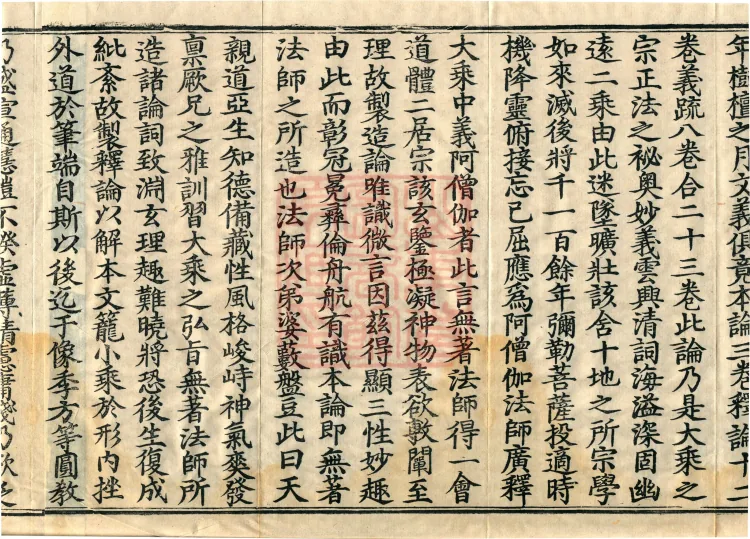 年樹檀之月文義俱竟本論三卷釋論十二
卷義疏八卷合二十三卷此論乃是大乘之
宗正法之祕奧妙義雲興清詞海溢深固幽
遠二乘由此迷墜曠壯該含十地之所宗學
如來滅後將千一百餘年彌勒菩薩投適時
機降靈俯接忘己屈應爲阿僧伽法師廣釋
大乘中義阿僧伽者此言無著法師得一會
道體二居宗該玄鑒極凝神物表欲敷闡至
理故製造論唯識微言因茲得顯三性妙趣
由此而彰冠冕彝倫舟航有識本論即無著
法師之所造也法師次弟婆藪盤豆此曰天
親道亞生知德備藏性風格峻峙神氣爽發
禀厥兄之雅訓習大乘之弘旨無著法師所
造諸論詞致淵玄理趣難曉將恐後生復成
紕紊故製釋論以解本文籠小乘於形內挫
外道於筆端自斯以後迄于像季方等圓教
乃盛宣通慧愷不揆虛薄情慮庸淺乃欲